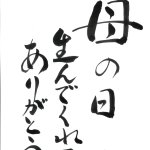 母の日
生んでくれて
ありがとう